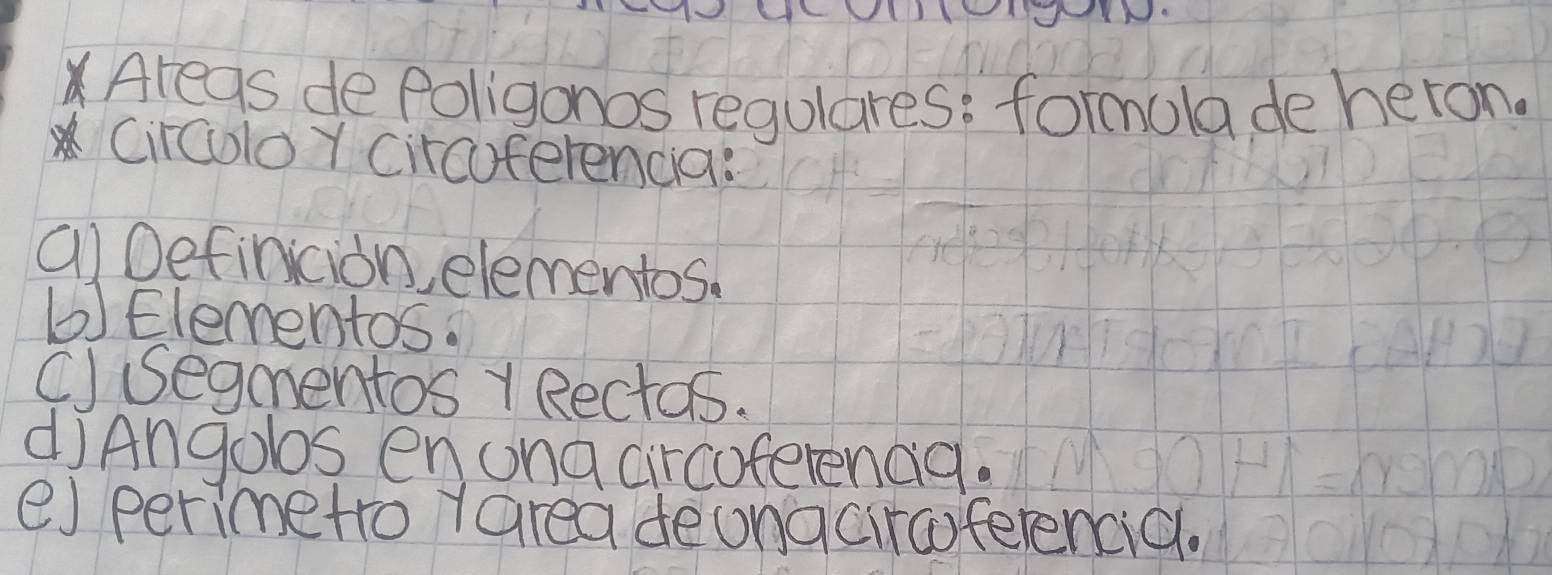 * Areas de Poligonos regulares: formula de heron.
* Circulo y circuferencia:
a) Definición, elementos.
b) Elementos.
c) Segmentos y Rectas.
d) Angulos en una circuferencia.
e) perimetro y area de una circuferencia.